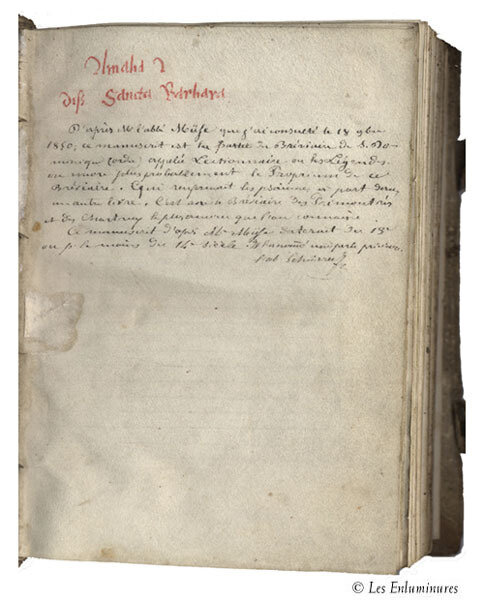 diss Sancta Barbara
D'après Mr l'abbé Mühe que j'ai consulté le 18 9bre
1850, ce manuscrit est la partie du Bréviaire de S. Do-
minique (ordre) appelé Lectionnaire ou les Légendes
ou moins plus probablement le Proprium de ce
Bréviaire. qui renfermait les psaumes à part dans
un autre livre. C'est avec le Bréviaire des Prémontrés
et des Chartreux le plus que l'on connaisse
Ce manuscrit d'après Mr Mühe daterait du 13e
ou le moins du 14e siècle
l'ab
© Les Enluminures